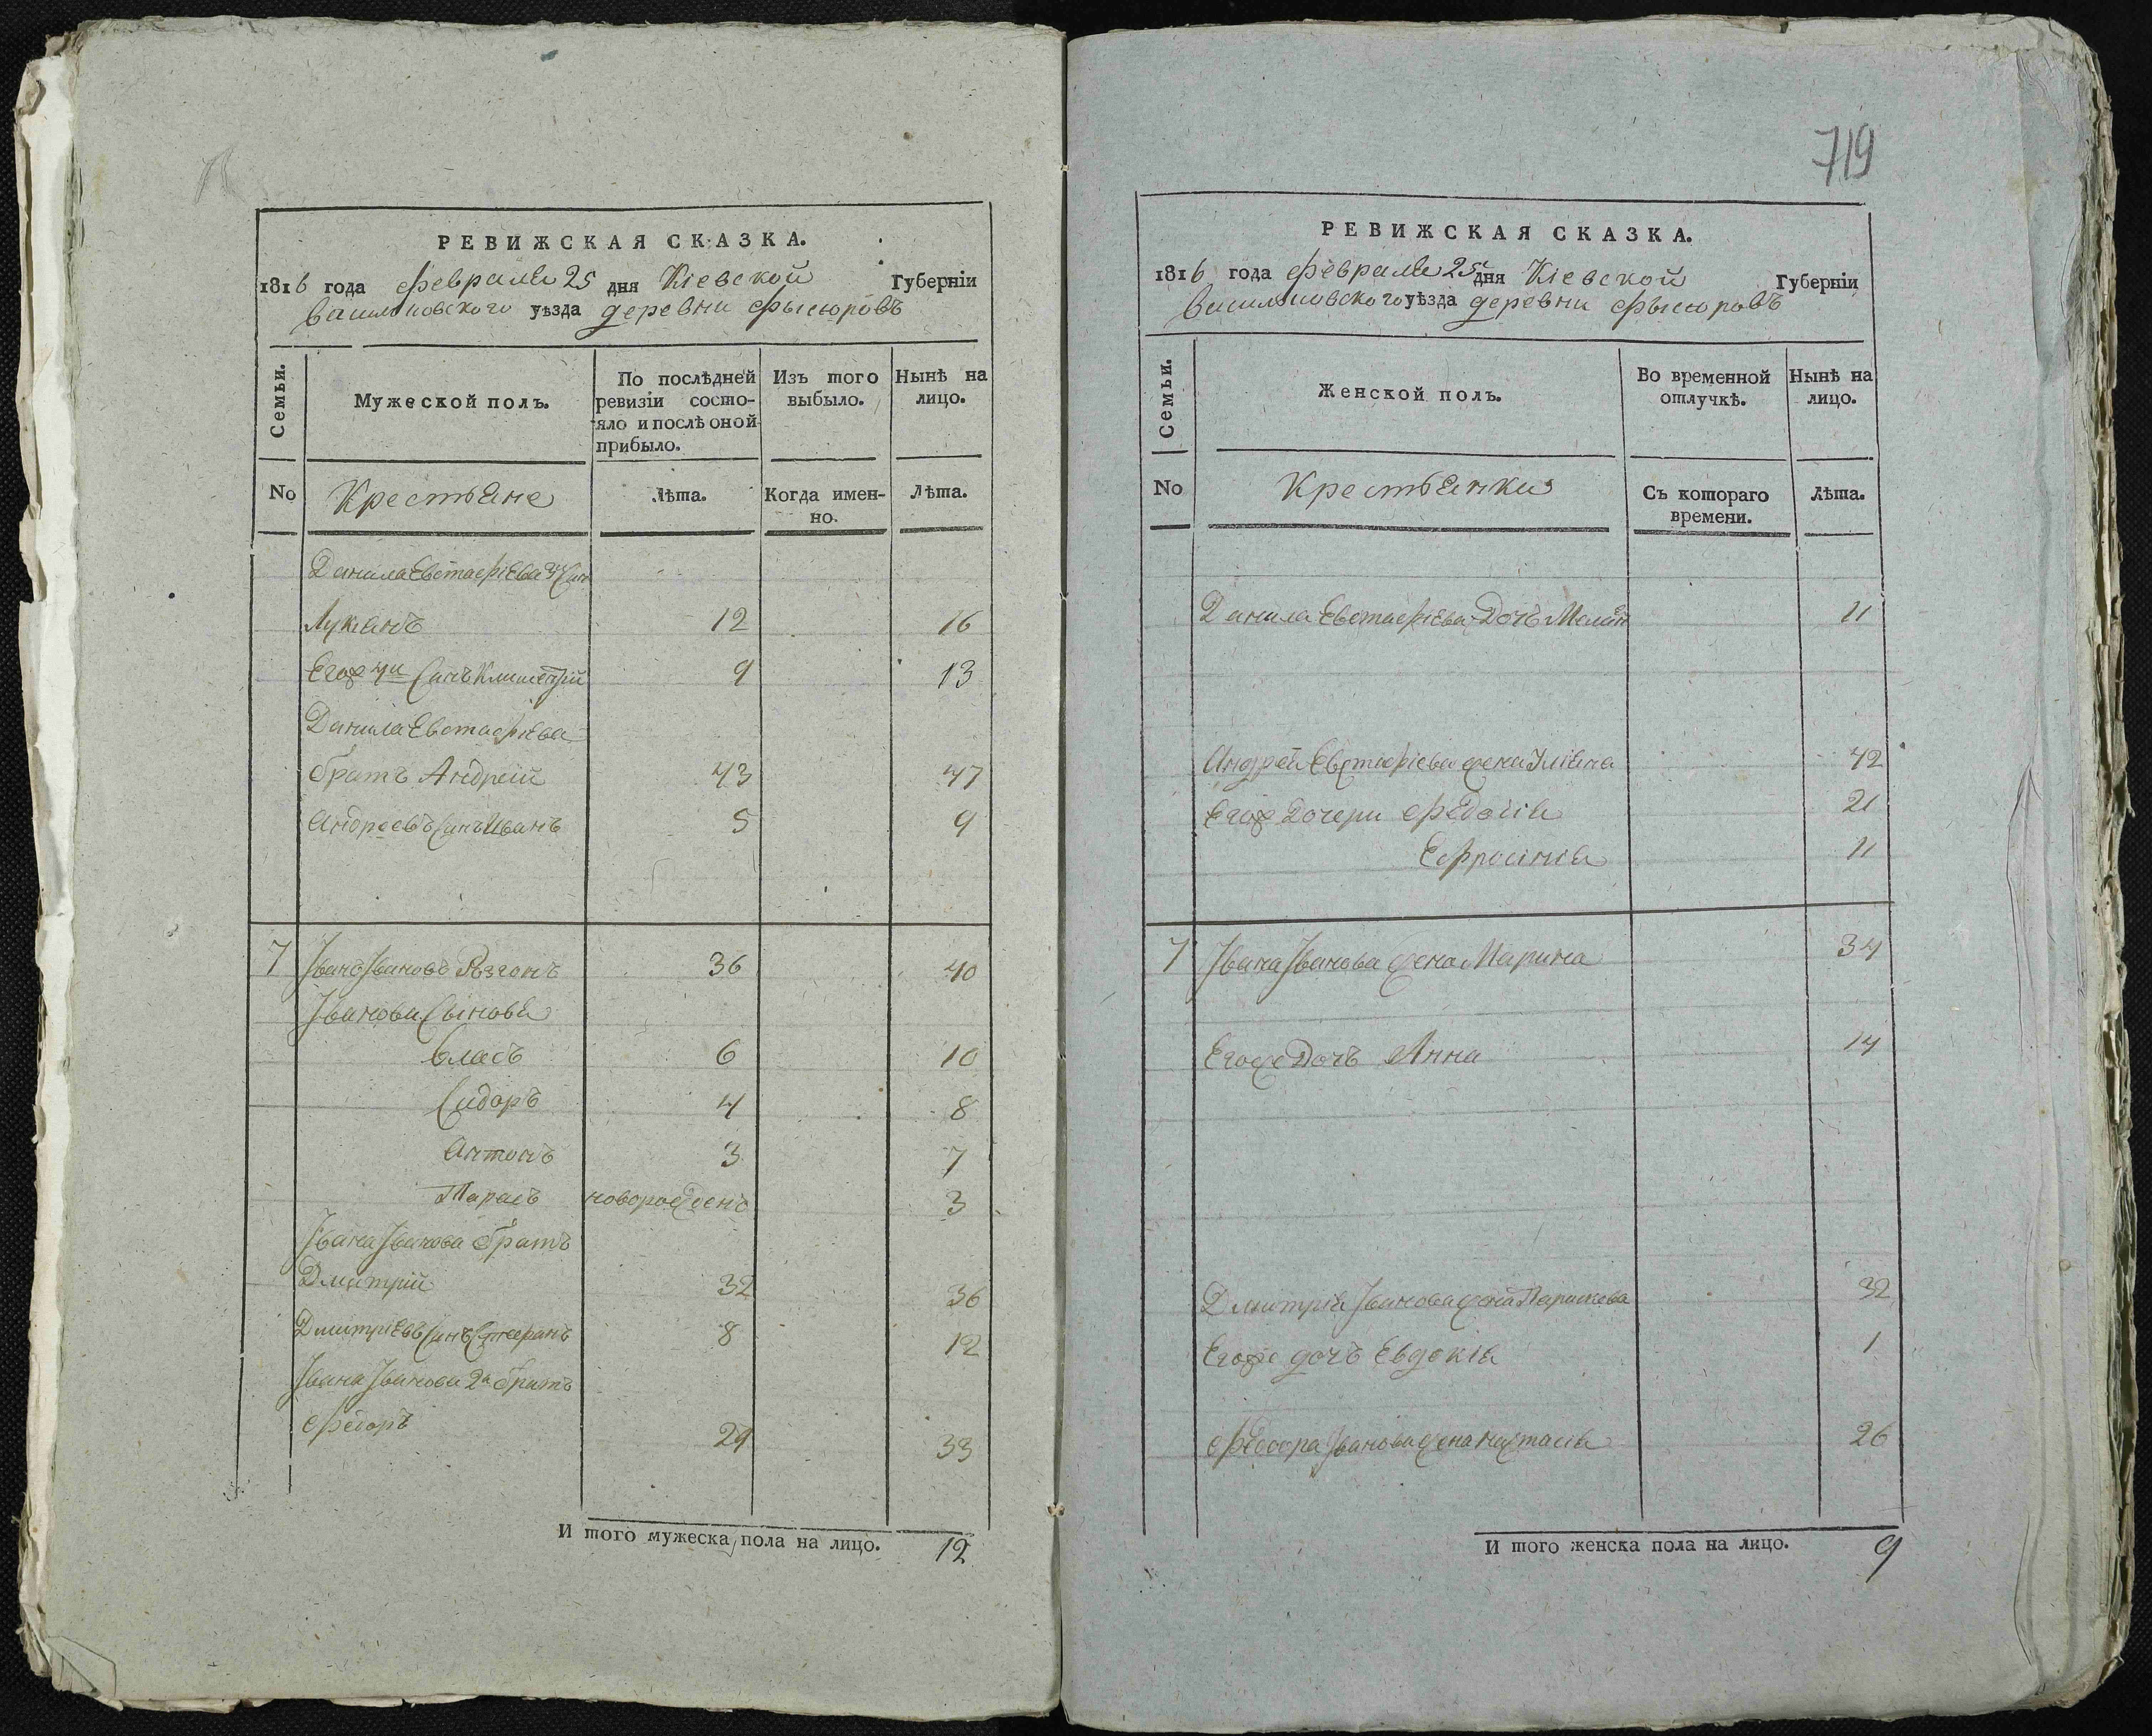 719
РЕВИЖСКАЯ СКАЗКА.
1816 года февраля 25 дня Кіевской Губерніи
Васильковского уѣзда деревни Фысюровъ
Семьи.
Мужеской полъ.
По послѣдней ревизіи состо-
яло и послѣ оной
прибыло.
Изъ того
выбыло.
Нынѣ на
лицо.
No
Крестьяне
Лѣта.
Когда имен-
но.
Лѣта.
Данила Евстафіева 3й Сын
Лукіянъ 12 16
Егож 4й Сынъ Климентій 9 13
Данила Евстафіева
братъ Андрей 43 47
Андреевъ Сынъ Иванъ 5 9
7 Іванъ Івановъ Розгонъ 36 40
Іванови Сыновья
Власъ 6 10
Сидоръ 4 8
Антонъ 3 7
Тарасъ новорожденъ 3
Івана Іванова братъ
Дмитрій 32 36
Дмитріевъ Сынъ Стефанъ 8 12
Івана Іванова 2й братъ
Федоръ 29 33
И того мужеска пола на лицо. 12
РЕВИЖСКАЯ СКАЗКА.
1816 года февраля 25 дня Кіевской Губерніи
Васильковского уѣзда деревни Фысюровъ
Семьи.
Женской полъ.
Во временной
отлучкѣ.
Нынѣ на
лицо.
No
Крестьянки
Съ котораго
времени.
Лѣта.
Данила Евстафіева Дочъ Мелан 11
Андрея Евстафіева жена Уліяна 42
Егож Дочери Федосія 21
Ефросинія 11
7 Івана Іванова жена Марина 34
Егоже Дочъ Анна 14
Дмитрія Іванова жена Параскева 32
Егоже дочъ Евдокія 1
Федора Іванова жена Настасія 26
И того женска пола на лицо. 9